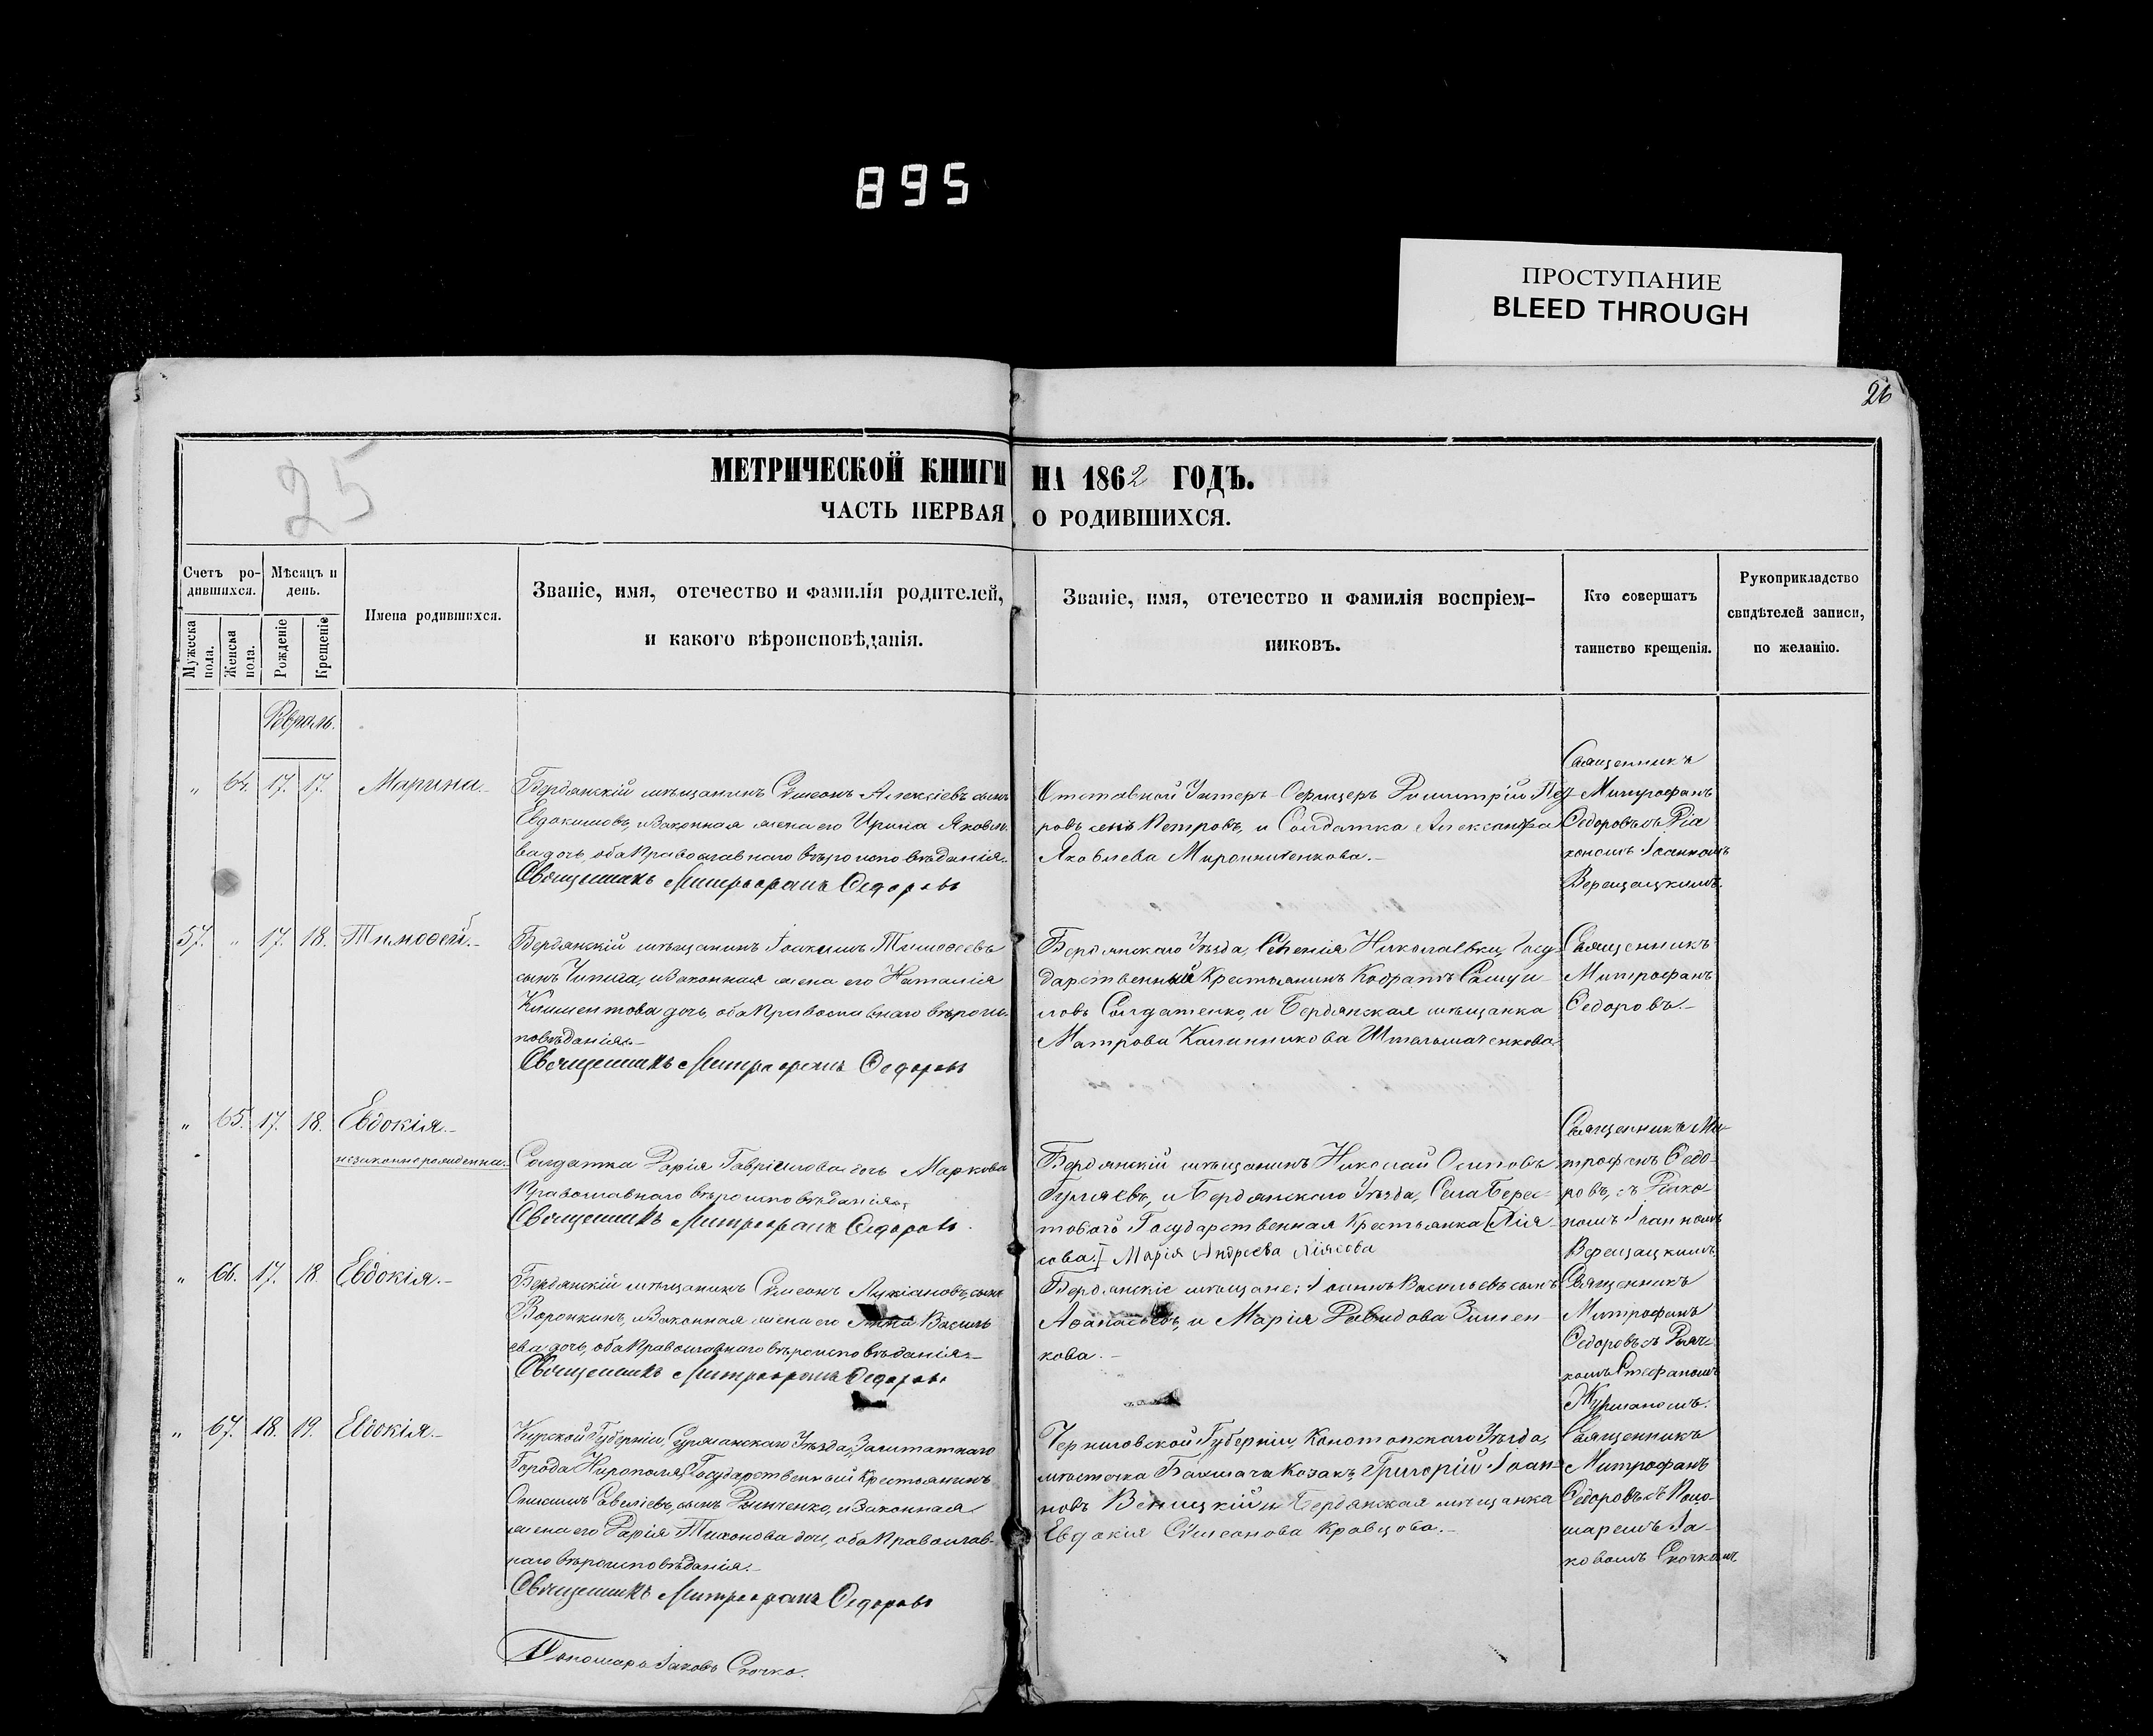 895
ПРОСТУПАНИЕ
BLEED THROUGH
26
25
МЕТРИЧЕСКОЙ КНИГИ НА 1862 ГОДЪ.
ЧАСТЬ ПЕРВАЯ О РОДИВШИХСЯ.
Счетъ ро-
дившихся.
Мужеска пола.
Женска пола.
Мѣсяцъ и
день.
Рожденіе
Крещеніе
Имена родившихся.
Званіе, имя, отечество и фамилія родителей,
и какого вѣроисповѣданія.
Званіе, имя, отечество и фамилія воспріем-
никовъ.
Кто совершатъ
таинство крещенія.
Рукоприкладство
свидѣтелей записи,
по желанію.
„ 64. 17. 17. Марина.-
Бердянскій мѣщанинъ Симеонъ Алексіевъ сынъ
Евдокимовъ, и законная жена его Ирина Яковле-
ва дочь, оба Православнаго вѣроисповѣданія.
Священникъ Митрофанъ Ѳедоровъ
Отставной Унтеръ-Офицеръ Димитрій Пет-
ровъ сынъ Петровъ, и Солдатка Александра
Яковлева Мирошниченкова.-
Священникъ
Митрофанъ
Ѳедоровъ съ Діа
кономъ Іоанномъ
Верещацкимъ.
57. „ 17. 18. Тимоѳей.-
Бердянскій мѣщанинъ Іоакимъ Тимоѳеевъ
сынъ Чипига, и законная жена его Наталія
Климентова дочь, оба Православнаго вѣроис-
повѣданія.-
Священникъ Митрофанъ Ѳедоровъ
Бердянскаго Уѣзда, Селенія Николаевки, Госу-
дарственный Крестьянинъ Кодратъ Самуи-
ловъ Солдатенко, и Бердянская мѣщанка
Матрона Калинникова Штельмаченкова.
Священникъ
Митрофанъ
Ѳедоровъ.-
„ 65. 17. 18. Евдокія.-
незаконнорожденна.
Солдатка Дарія Гавріилова дочь Маркова
Православнаго вѣроисповѣданія.
Священникъ Митрофанъ Ѳедоровъ.
Бердянскій мѣщанинъ Николай Осиповъ
Гуляевъ, и Бердянскаго Уѣзда, Села Берес-
товаго Государственная Крестьянка [Лія-
сова.] Марія Андреева Ліясова
Священникъ Ми-
трофанъ Ѳедо-
ровъ, съ Діако-
номъ Іоанномъ
Верещацкимъ.
„ 66. 17. 18. Евдокія.-
Бердянскій мѣщанинъ Симеонъ Лукіановъ сынъ
Воронкинъ, и законная жена его Василь
ева дочь, оба Православнаго вѣроисповѣданія.-
Священникъ Митрофанъ Ѳедоровъ
Бердянскіе мѣщане: Іоаннъ Васильевъ сынъ
Аѳанасьевъ, и Марія Давидова Зимен-
кова.-
Священникъ
Митрофанъ
Ѳедоровъ съ Дьяч-
комъ Стефаномъ
„ 67. 18. 19. Евдокія.-
Курской Губерніи, Суджанскаго Уѣзда, Заштатнаго
Города Мирополя, Государственный Крестьянинъ
Онисимъ Савеліевъ сынъ и законная
жена его Дарія Тихонова дочь, оба Православ-
наго вѣроисповѣданія.-
Священникъ Митрофанъ Ѳедоровъ
Черниговской Губерніи, Конотопскаго Уѣзда,
мѣстечка Бахмача Козакъ, Григорій Іоан-
новъ и Бердянская мѣщанка
Евдокія Симеонова Кравцова.-
Священникъ
Митрофанъ
Ѳедоровъ съ Поно-
маремъ Іа-
ковомъ Скочкомъ
Пономарь Іаковъ Скочко.